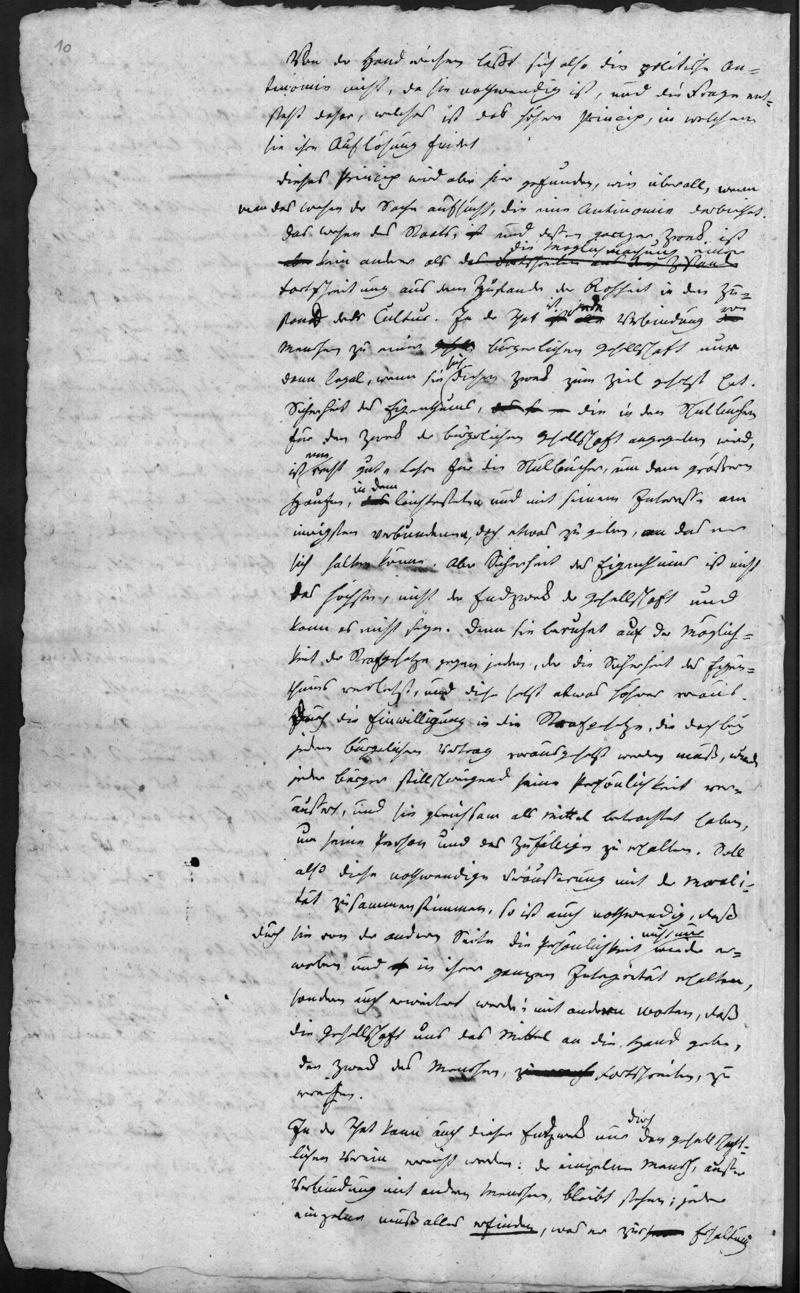 10
Von der Hand weisen läßt sich also die politische An-
tinomie nicht, da sie nothwendig ist, und die Frage ent-
steht daher, welches ist das höhere Princip, in welchem
sie ihre Auflösung findet
Dieses Princip wird aber hier gefunden, wie überall, wenn
man das Wesen der Sache aufsucht, die eine Antinomie darbietet.
Das Wesen des Staats, und dessen ganzer Zwek ist
die Möglichmachung einer
kein anderer als das Fortschreiten aus dem Zustande
Fortschreitung aus dem Zustande der Rohheit in den Zu-
stand der Cultur. In der That ist jede Verbindung von
Menschen zu einer bürgerlichen Gesellschaft nur
dann legal, wenn sie sich diesen Zwek zum Ziel gesetzt hat.
Sicherheit des Eigenthums, die in den Schulbüchern
für den Zwek der bürgerlichen Gesellschaft angegeben wird,
ist recht gute Lehre für die Schulbücher, um dem grösseren
Haufen, in dem leichtesten und mit seinem Interesse am
innigsten verbundenen, doch etwas zu geben, an das er
sich halten könne. Aber Sicherheit des Eigenthums ist nicht
das höchste, nicht der Endzwek der Gesellschaft und
kann es nicht seyn. Denn sie beruhet auf der Möglich-
keit der Strafgesetze gegen jeden, der die Sicherheit des Eigen-
thums verletzt, und diese setzt etwas höheres voraus.
Durch die Einwilligung in die Strafgesetze, die doch bey
jedem bürgerlichen Vertrag vorausgesetzt werden muß, würde
jeder Bürger stillschweigend seine Persönlichkeit ver-
äussert, und sie gleichsam als Mittel betrachtet haben,
um seine Person und das Zufällige zu erhalten. Soll
also diese nothwendige Veräusserung mit der Morali-
tät zusammenstimmen, so ist auch nothwendig, daß
durch sie von der andern Seite die Persönlichkeit nicht nur wieder er-
worben und in ihrer ganzen Integrität erhalten,
sondern auch erweitert werde; mit andern Worten, daß
die Gesellschaft uns das Mittel an die Hand gebe,
den Zwek des Menschen, Fortschreiten, zu
erreichen.
In der That kann auch dieser Endzwek nur durch den gesellschaft-
lichen Verein erreicht werden: der einzelne Mensch, ausser
Verbindung mit andern Menschen, bleibt stehen; jeder
einzelne muß alles erfinden, was er zur Erhaltung